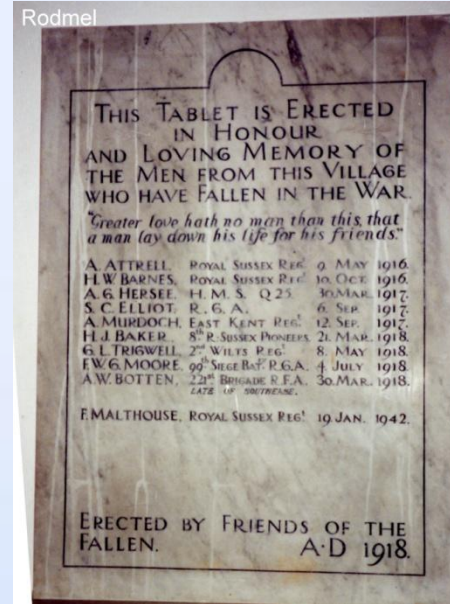 Rodmel
THIS TABLET IS ERECTED
IN HONOUR
AND LOVING MEMORY OF
THE MEN FROM THIS VILLAGE
WHO HAVE FALLEN IN THE WAR.
"Greater love hath no man than this, that
a man lay down his life for his friends."
A. ATTRELL, ROYAL SUSSEX REGT 9. MAY 1916.
H.W. BARNES, ROYAL SUSSEX REGT 10. OCT. 1916.
A.G. HERSEE, H.M.S. Q 25. 30 MAR. 1917.
S.C. ELLIOT, R.G.A. 6. SEP. 1917.
A. MURDOCH, EAST KENT REGT 12. SEP. 1917.
H.J. BAKER, 8th R. SUSSEX PIONEERS, 21. MAR. 1918.
G.L. TRIGWELL, 2nd WILTS REGT 8. MAY 1918.
F.W.G. MOORE, 99th SIEGE BATY R.G.A. 4 JULY 1918.
A.W. BOTTEN, 221st BRIGADE R.F.A. 30. MAR. 1918.
LATE OF SOUTHEASE.
F. MALTHOUSE, ROYAL SUSSEX REGT 19 JAN. 1942.
ERECTED BY FRIENDS OF THE
FALLEN. A·D 1918.